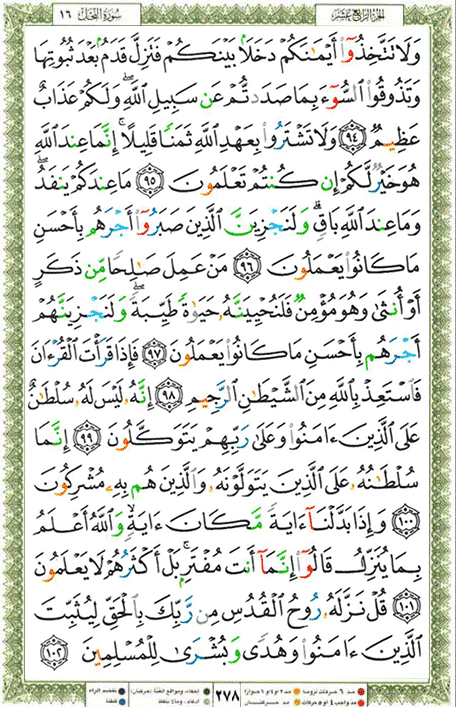 الجزء الرابع عشر
سورة النحل ١٦
وَلَا تَتَّخِذُوٓا۟ أَيْمَٰنَكُمْ دَخَلًۢا بَيْنَكُمْ فَتَزِلَّ قَدَمٌۢ بَعْدَ ثُبُوتِهَا
وَتَذُوقُوا۟ ٱلسُّوٓءَ بِمَا صَدَدتُّمْ عَن سَبِيلِ ٱللَّهِ ۖ وَلَكُمْ عَذَابٌ
عَظِيمٌ ﴿٩٤﴾ وَلَا تَشْتَرُوا۟ بِعَهْدِ ٱللَّهِ ثَمَنًا قَلِيلًا ۚ إِنَّمَا عِندَ ٱللَّهِ
هُوَ خَيْرٌ لَّكُمْ إِن كُنتُمْ تَعْلَمُونَ ﴿٩٥﴾ مَا عِندَكُمْ يَنفَدُ ۖ
وَمَا عِندَ ٱللَّهِ بَاقٍ ۗ وَلَنَجْزِيَنَّ ٱلَّذِينَ صَبَرُوٓا۟ أَجْرَهُم بِأَحْسَنِ
مَا كَانُوا۟ يَعْمَلُونَ ﴿٩٦﴾ مَنْ عَمِلَ صَٰلِحًا مِّن ذَكَرٍ
أَوْ أُنثَىٰ وَهُوَ مُؤْمِنٌ فَلَنُحْيِيَنَّهُۥ حَيَوٰةً طَيِّبَةً ۖ وَلَنَجْزِيَنَّهُمْ
أَجْرَهُم بِأَحْسَنِ مَا كَانُوا۟ يَعْمَلُونَ ﴿٩٧﴾ فَإِذَا قَرَأْتَ ٱلْقُرْءَانَ
فَٱسْتَعِذْ بِٱللَّهِ مِنَ ٱلشَّيْطَٰنِ ٱلرَّجِيمِ ﴿٩٨﴾ إِنَّهُۥ لَيْسَ لَهُۥ سُلْطَٰنٌ
عَلَى ٱلَّذِينَ ءَامَنُوا۟ وَعَلَىٰ رَبِّهِمْ يَتَوَكَّلُونَ ﴿٩٩﴾ إِنَّمَا
سُلْطَٰنُهُۥ عَلَى ٱلَّذِينَ يَتَوَلَّوْنَهُۥ وَٱلَّذِينَ هُم بِهِۦ مُشْرِكُونَ
﴿١٠٠﴾ وَإِذَا بَدَّلْنَآ ءَايَةً مَّكَانَ ءَايَةٍ ۙ وَٱللَّهُ أَعْلَمُ
بِمَا يُنَزِّلُ قَالُوٓا۟ إِنَّمَآ أَنتَ مُفْتَرٍۭ ۚ بَلْ أَكْثَرُهُمْ لَا يَعْلَمُونَ
﴿١٠١﴾ قُلْ نَزَّلَهُۥ رُوحُ ٱلْقُدُسِ مِن رَّبِّكَ بِٱلْحَقِّ لِيُثَبِّتَ
ٱلَّذِينَ ءَامَنُوا۟ وَهُدًى وَبُشْرَىٰ لِلْمُسْلِمِينَ ﴿١٠٢﴾
٢٧٨